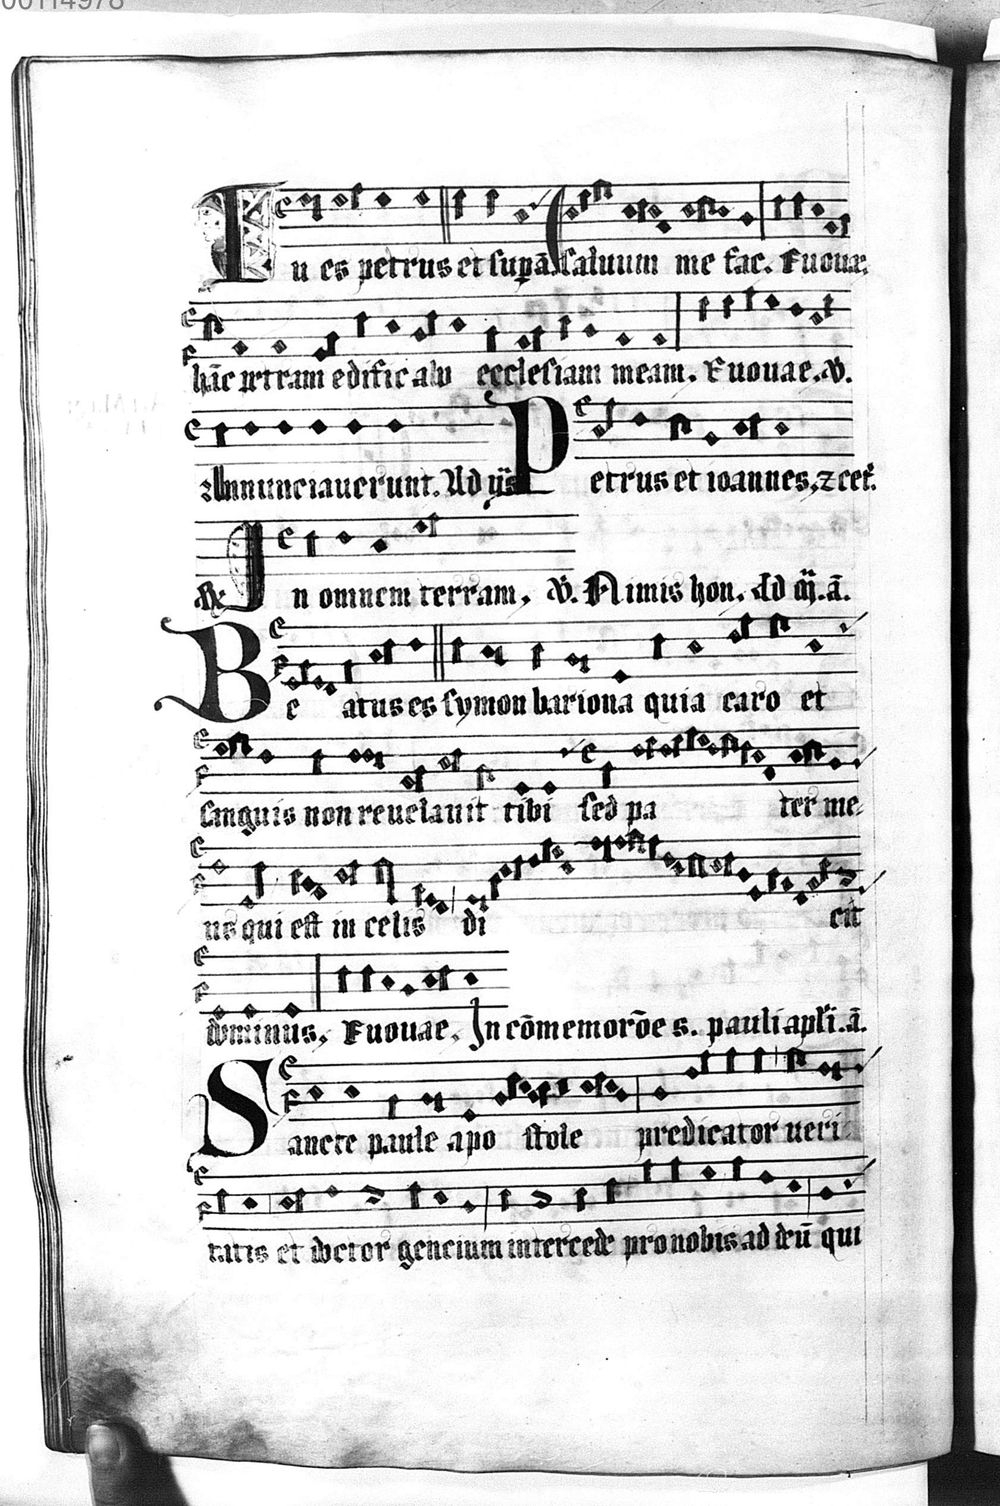 00114978
Tu es petrus et supͣ ā. Saluum me fac. Euouae.
hāc petram edificabo ecclesiam meam. Euouae. V.
Annunciauerunt. Ad ijͣs Petrus et ioannes, ⁊ ceť.
R In omnem terram, V. Nimis hon. Ad iij. ā.
Beatus es symon bariona quia caro et
sanguis non reuelauit tibi sed pater me
us qui est in celis dicit
dominus. Euouae. In cōmemorōe s. pauli apľi. ā.
Sancte paule apostole predicator ueri
tatis et doctor gencium intercede pro nobis ad deū qui